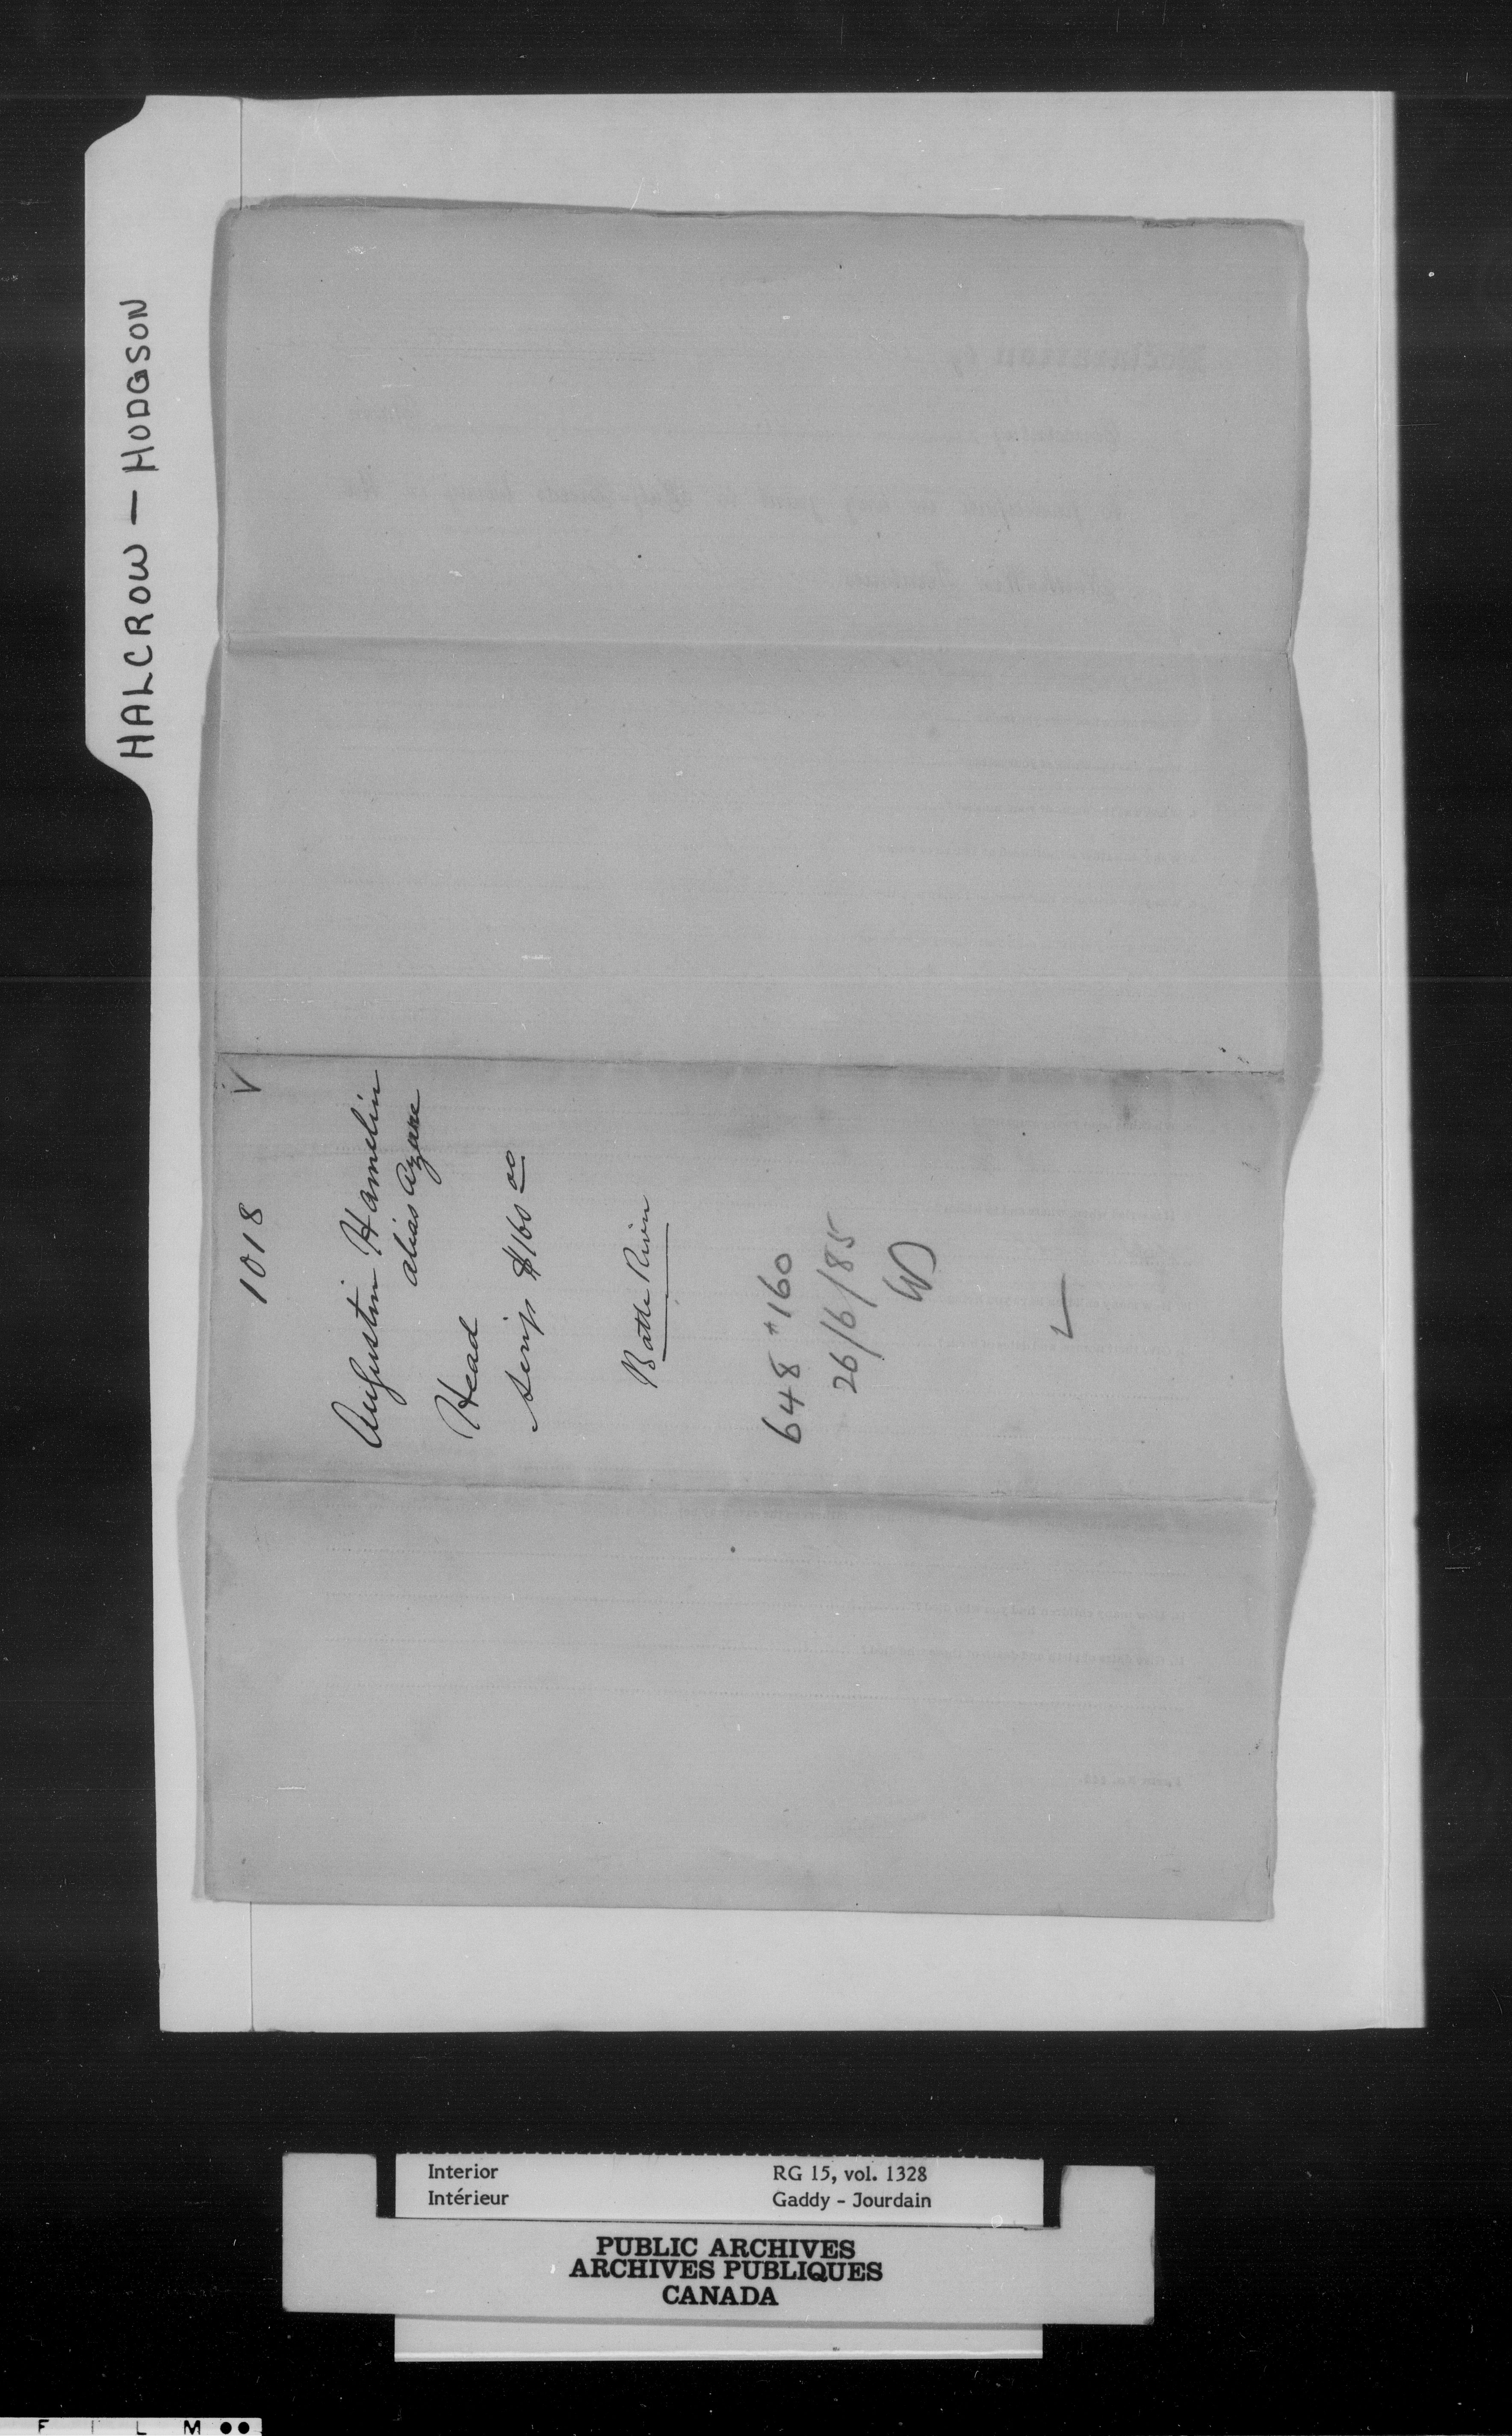 HALCROW — HODGSON
1018 V
Augustin Hamelin
alias Azure
Head
Scrip $160 00
Battle River
648 $160
26/6/85
Interior
Intérieur
RG 15, vol. 1328
Gaddy - Jourdain
PUBLIC ARCHIVES
ARCHIVES PUBLIQUES
CANADA
F I L M